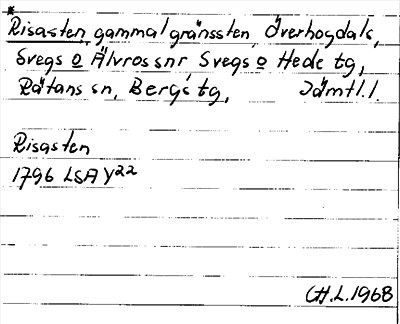 *
Risasten, gammal gränssten, Överhogdals,
Svegs o Älvros snr Svegs o Hede tg,
Rätans sn, Bergs tg, Jämtl.l
Risasten
1796 LSA Y22
CH.L.1968